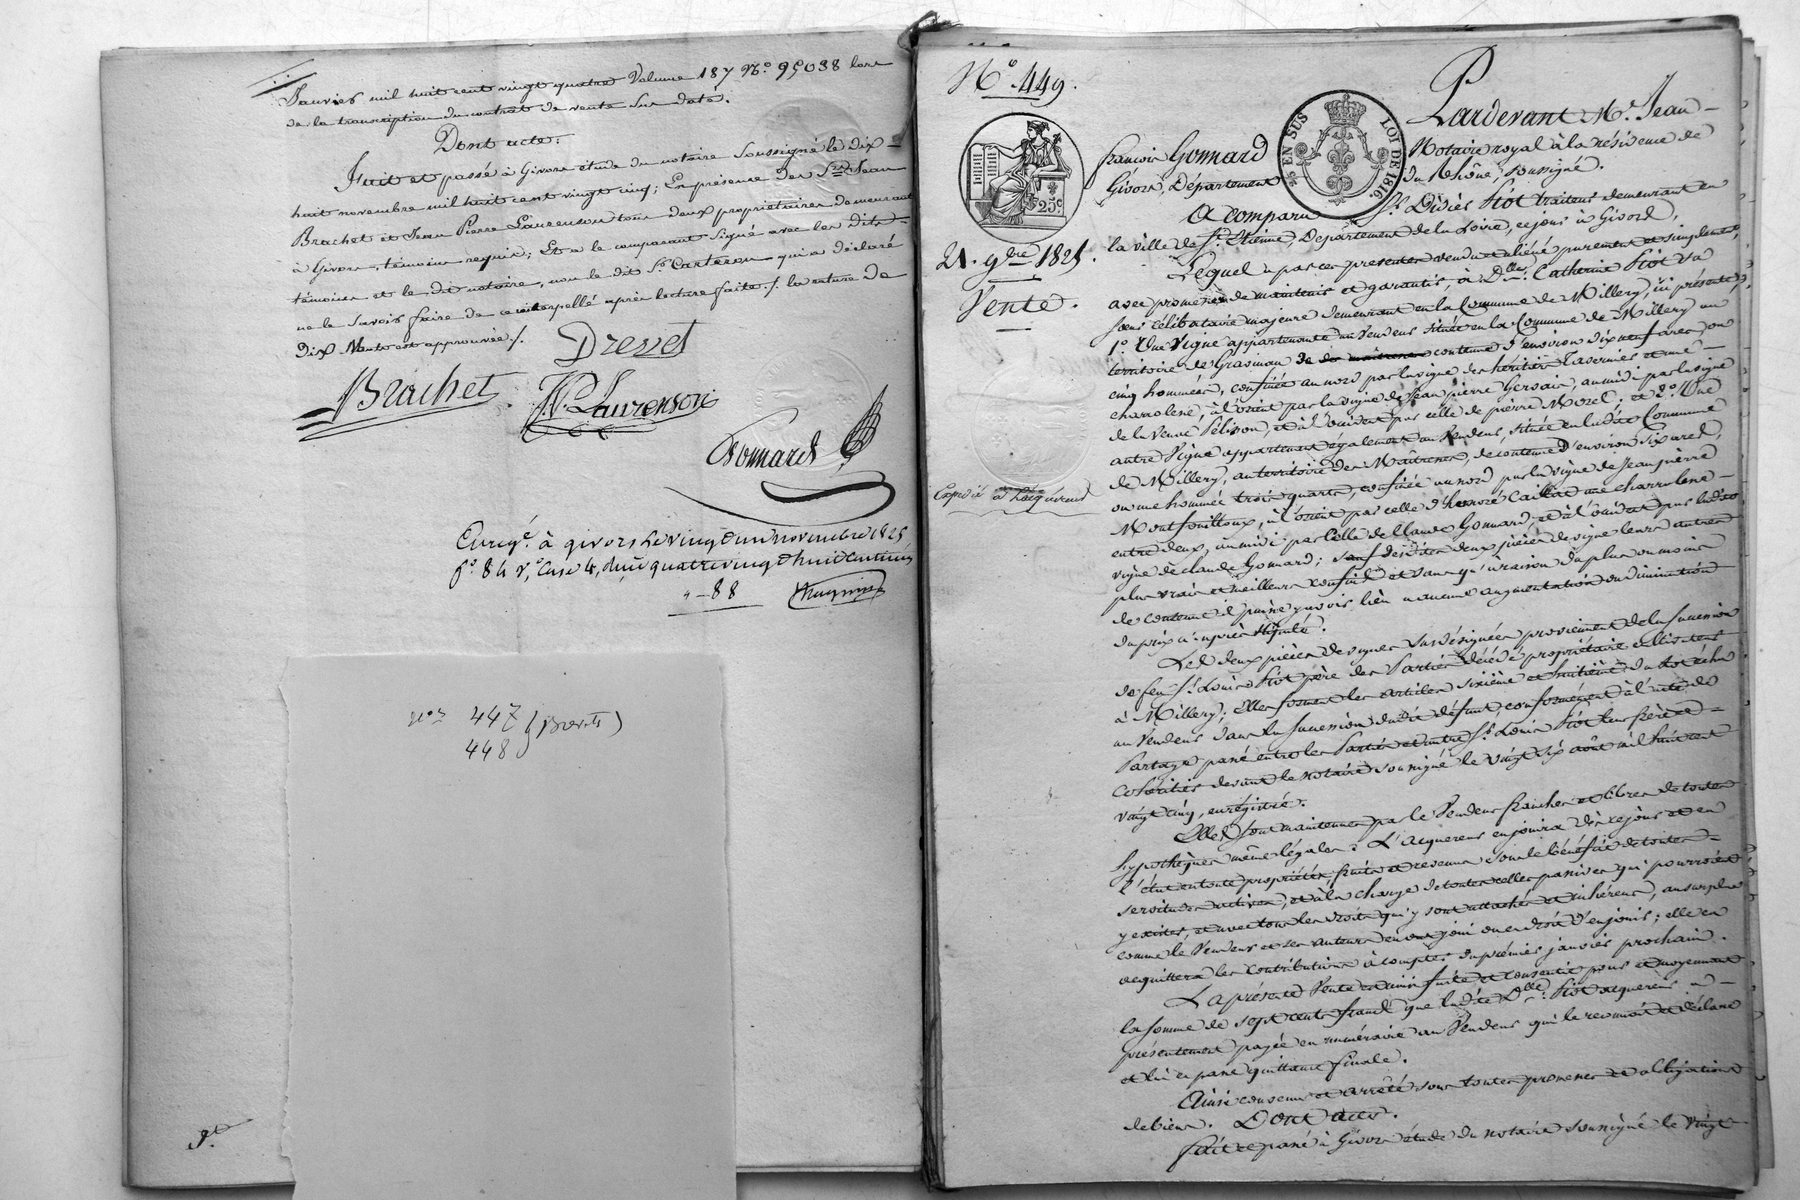 Janvier mil huit cent vingt quatre Volume 187 N.° 95038 lors
de la transcription du contrat de vente sus daté.
Dont acte.
Fait et passé à Givors étude du notaire soussigné le dix-
huit novembre mil huit cent vingt cinq; En présence des Srs Jean
Brachet et Jean Pierre Laurenson tous deux propriétaires demeurant
à Givors, témoins requis; Et a le comparant signé avec les dits
témoins et le dit notaire, non le dit Sr Carteron qui a déclaré
ne le savoir faire de ce interpellé après lecture faite ./. la rature de
dix Mots est approuvée ./.
Drevet
Brachet
J.P. Laurenson
Gonnard
Enregé. à givors le vingt un novembre 1825
f° 84 v°, Case 4, dûû quatre vingt huit centimes
" - 88
Nos 447 (Brevets)
448
N° 449.
25 EN SUS
LOI DE 1816
25c
21. 9bre 1825.
Vente.
Expédié à l'acquéreur
Pardevant Me. Jean-
françois Gonnard Notaire royal à la résidence de
Givors, Département du Rhône, soussigné.
A comparu Sr. Didier Fiot traiteur demeurant en
la ville de St. Etienne, Département de la Loire, ce jour à Givors,
Lequel a par ces présentes vendu et aliéné purement et simplement,
avec promesse de maintenir et garantir, à Dlle. Catherine Fiot sa
sœur célibataire majeure demeurant en la Commune de Millery, ici présente,
1° Une Vigne appartenante au Vendeur située en la Commune de Millery au
territoire de Grasinan de contenue d'environ dix neuf ares ou
cinq hommées, confinée au nord par la vigne des héritiers Tavernier une
charrolene, à l'orient par la vigne de Jean pierre Gervais, au midi par la vigne
de la Veuve Pélisson, et à l'occident par celle de pierre Morel; et 2° Une
autre Vigne appartenant également au Vendeur, située en la dite Commune
de Millery, au territoire des Maitrenes, de contenue d'environ six ares,
ou une hommée trois quarts, confinée au nord par la vigne de Jean pierre
Montfouilloux, à l'orient par celle d'honoré Caillat une charrolene
entre deux, au midi par celle de Claude Gonnard, et à l'occident par la dite
vigne de claude Gonnard; sauf des dites deux pièces de vigne leurs autres
plus vrais et meilleurs confins et sans qu'à raison du plus ou moins
de contenue il puisse y avoir lieu à aucune augmentation ou diminution
du prix ci après stipulé.
Les deux pièces de vignes sus désignées proviennent de la succession
de feu Sr. Louis Fiot père des Parties décédé propriétaire
à Millery; elles forment les articles sixième et huitième du lot échu
au Vendeur dans la succession du dit défunt, conformément à l'acte de
Partage passé entre les Parties et Sr. Louis Fiot leur frère et
Cohéritier devant le notaire soussigné le vingt six août mil huit cent
vingt cinq, enregistré.
Elles sont maintenues par le Vendeur franches et libres de toutes
hypothèques même légales: L'acquereur en jouira dès ce jour et en
l'état en toute propriété, fruits et revenus sous le bénéfice de toutes
servitudes actives, et à la charge de toutes celles passives qui pourroient
y exister, et avec tous les droits qui y sont attachés et inhérens, au surplus
comme le Vendeur et ses auteurs en ont joui ou eu droit d'en jouir; elle en
acquittera les contributions à compter du premier janvier prochain.
La présente Vente est ainsi faite et consentie pour et moyennant
la somme de sept cents francs que la dite Dlle. Fiot acquereur a
présentement payée en numéraire au Vendeur qui le reconnoît et déclare
et lui en passe quittance finale.
Ainsi convenu et arrêté sous toutes promesses et obligations
de biens. Dont acte.
Fait et passé à Givors étude du notaire soussigné le vingt